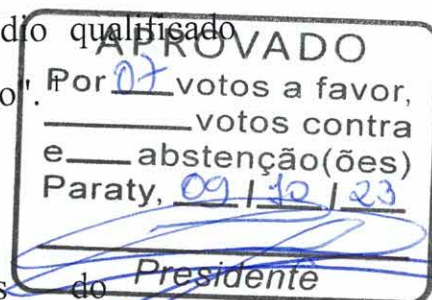 dio qualificado
o".
APROVADO
Por 07 votos a favor,
votos contra
e abstenção(ões)
Paraty, 09 / 10 / 23
Presidente
s do